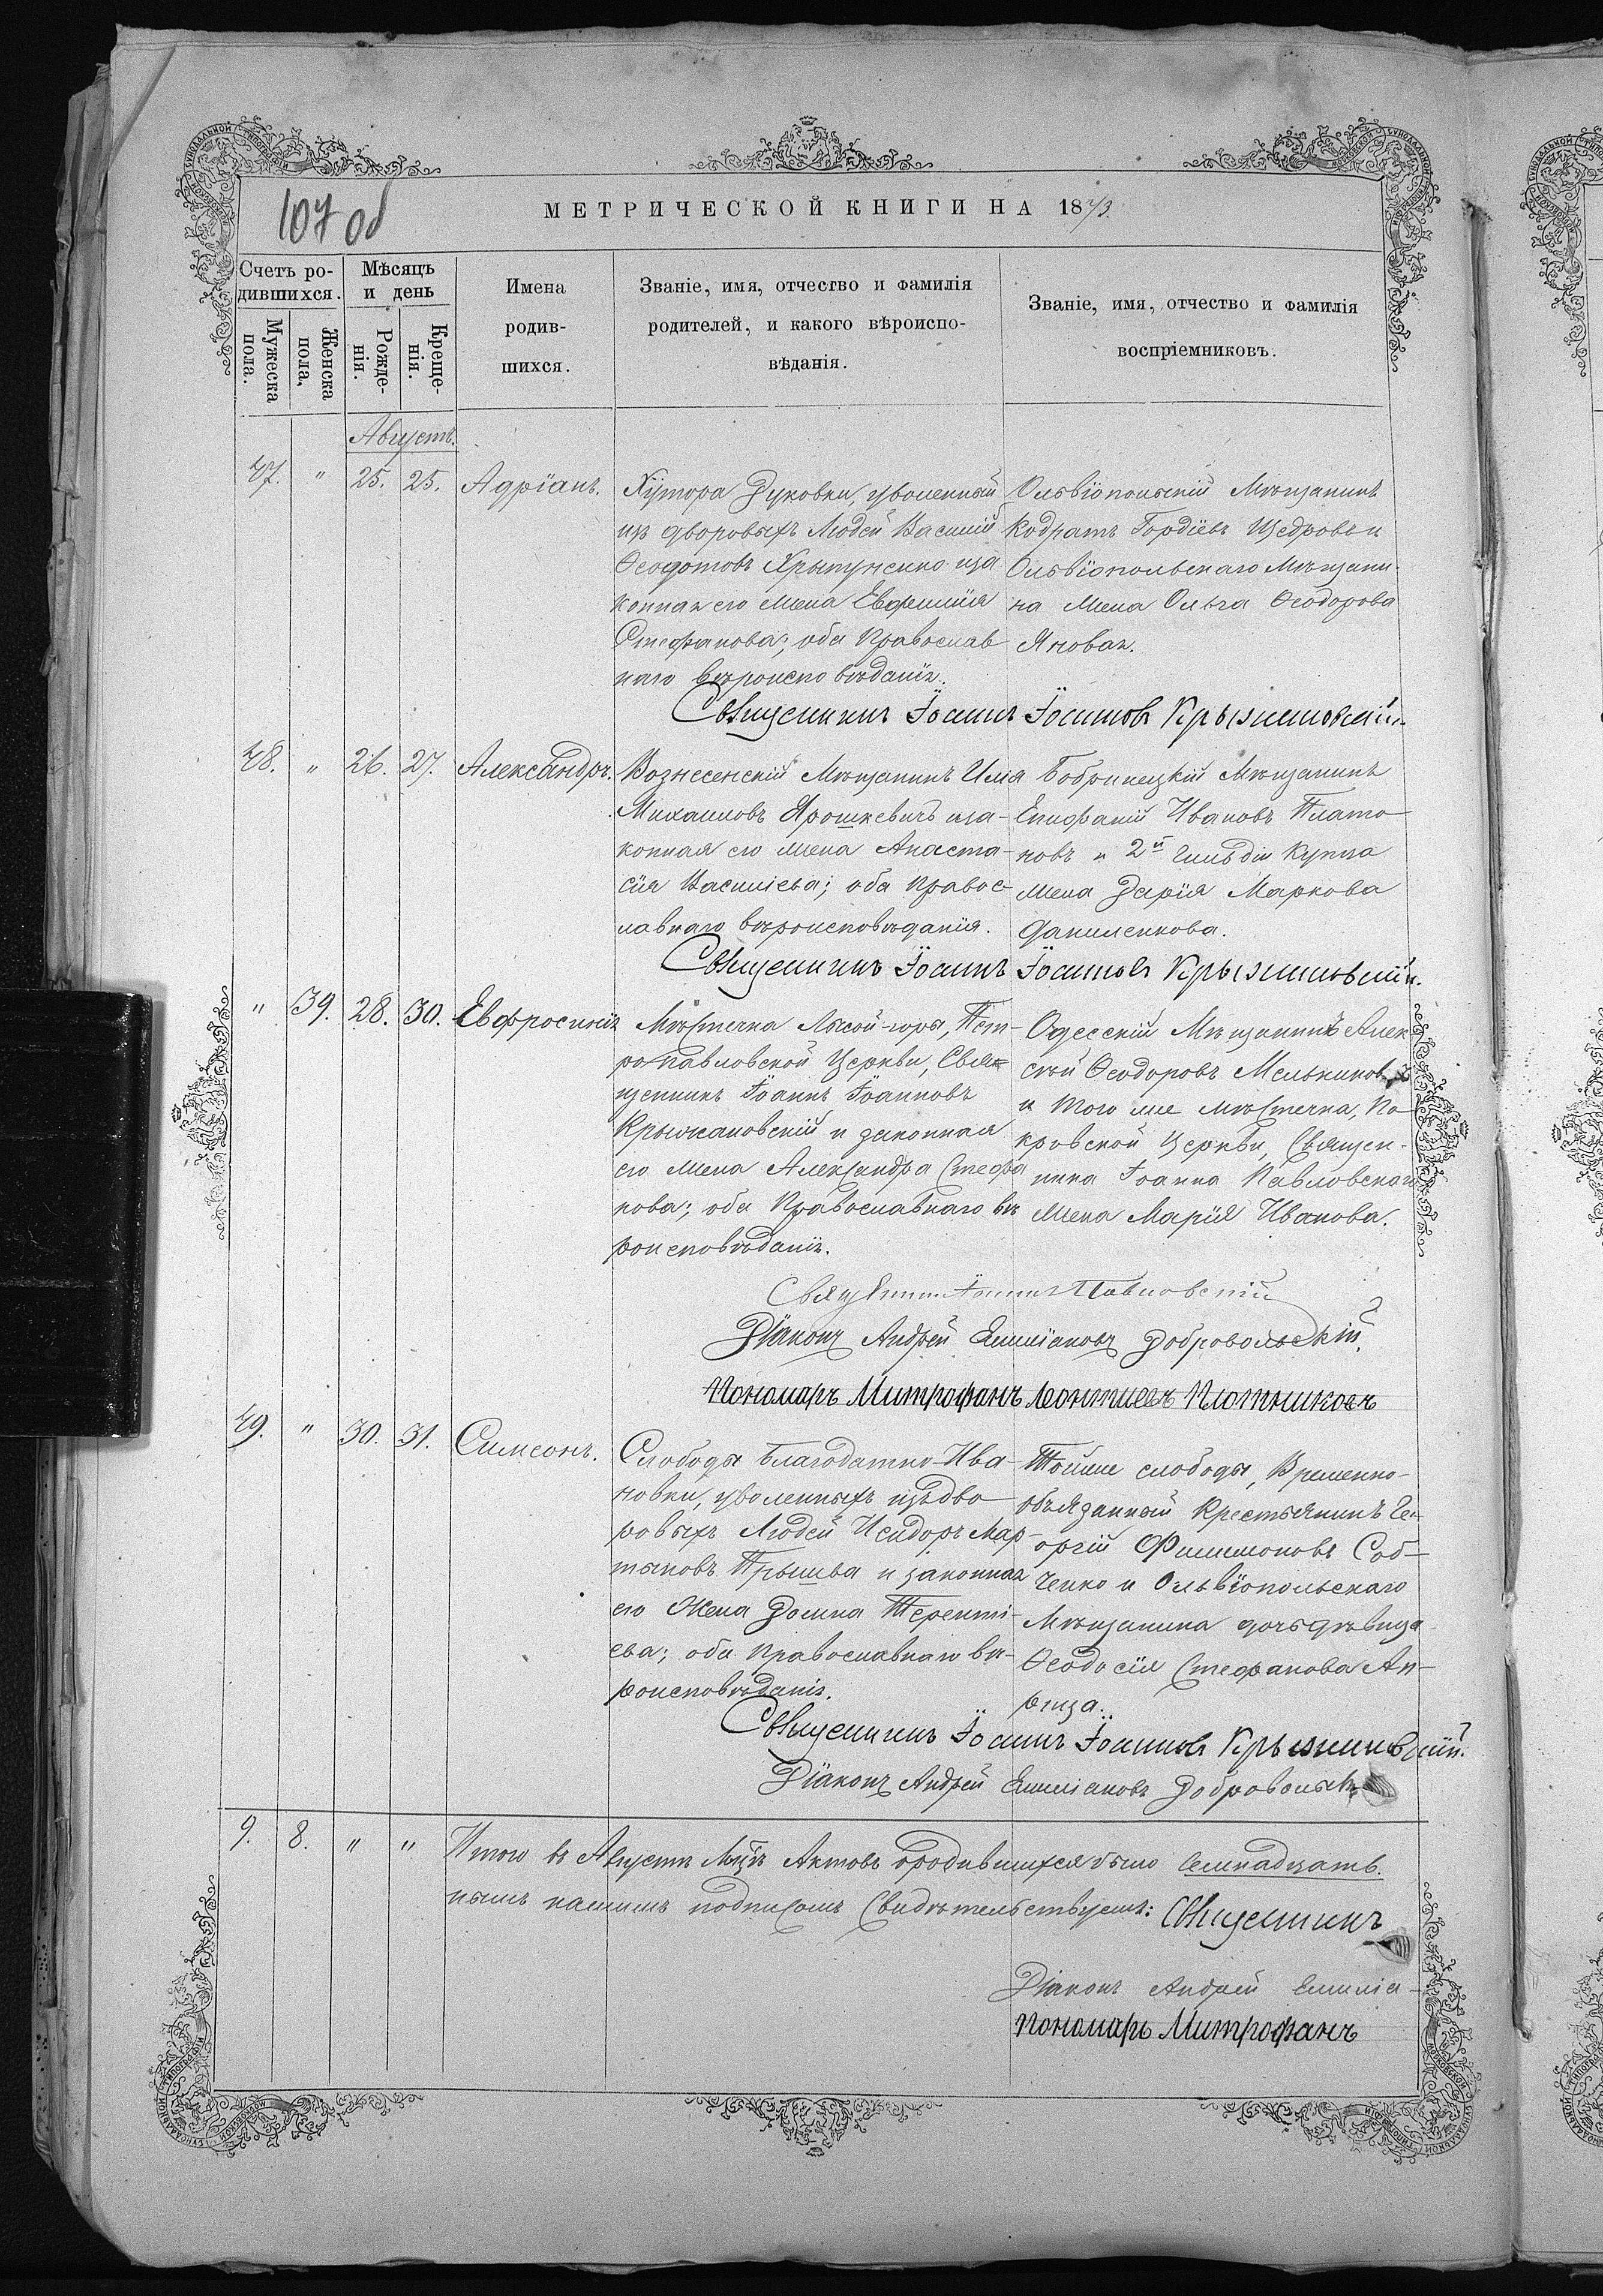 107 об
МЕТРИЧЕСКОЙ КНИГИ НА 1873
Счетъ ро-
дившихся.
Мужеска
пола.
Женска
пола.
Мѣсяцъ
и день
Рожде-
нія.
Креще-
нія.
Имена
родив-
шихся.
Званіе, имя, отчество и фамилія
родителей, и какого вѣроиспо-
вѣданія.
Званіе, имя, отчество и фамилія
воспріемниковъ.
Августъ.
47. " 25. 25. Адріанъ.
Хутора Дуковки, уволенный
изъ дворовыхъ людей Василій
Ѳеодотовъ и за
конная его жена Евфимія
Стефанова; оба Православ
наго вѣроисповѣданія.
Ольвіопольскій Мѣщанинъ
Кодратъ Гордіевъ Щедровъ и
Ольвіопольскаго Мѣщани-
на Жена Ольга Ѳеодорова
Яновая.
Священникъ Іоаннъ Іоанновъ Крыжановскій.
48. " 26. 27. Александръ.
Вознесенскій Мѣщанинъ Илія
Михаиловъ Ярошкевичъ и за-
конная его жена Анаста-
сія Василіева; оба Правос-
лавнаго вѣроисповѣданія.
Бобринецкій Мѣщанинъ
Епифаній Ивановъ Плато-
новъ и 2й Гильдіи Купца
жена Дарія Маркова
Даниленкова.
Священникъ Іоаннъ Іоанновъ Крыжановскій.
" 39. 28. 30. Евфросинія
Мѣстечка Лысой-горы, Пет-
ропавловской Церкви, Свя-
щенникъ Іоаннъ Іоанновъ
Крыжановскій и законная
его жена Александра Стефа
нова; оба Православнаго вѣ
роисповѣданія.
Одесскій Мѣщанинъ Алек-
сѣй Ѳеодоровъ Мельниковъ
и того же мѣстечка, По-
кровской Церкви, Священ-
ника Іоанна Павловскаго
жена Марія Иванова.
Священникъ Іоаннъ Павловскій
Діаконъ Андрей Емиліановъ Добровольскій.
Пономарь Митрофанъ Леонтіевъ Плотниковъ
49. " 30. 31. Симеонъ.
Слободы Благодатно-Ива-
новки, уволенныхъ изъ дво
ровыхъ Людей Исидоръ Мар-
тыновъ и законная
его Жена Домна Теренті-
ева; оба Православнаго вѣ-
роисповѣданія.
Тойже слободы, Временно-
обязанный Крестьянинъ Ге-
оргій Филимоновъ Соб-
ченко и Ольвіопольскаго
Мѣщанина дочь дѣвица
Ѳеодосія Стефанова
Священникъ Іоаннъ Іоанновъ Крыжановскій.
Діаконъ Андрей Емиліановъ Добровольскій
9. 8. " " Итого въ Августѣ Мцѣ Актовъ о родившихся было семнадцать.
нымъ нашимъ подписомъ Свидѣтельствуемъ: Священникъ
Діаконъ Андрей Емиліа-
Пономарь Митрофанъ